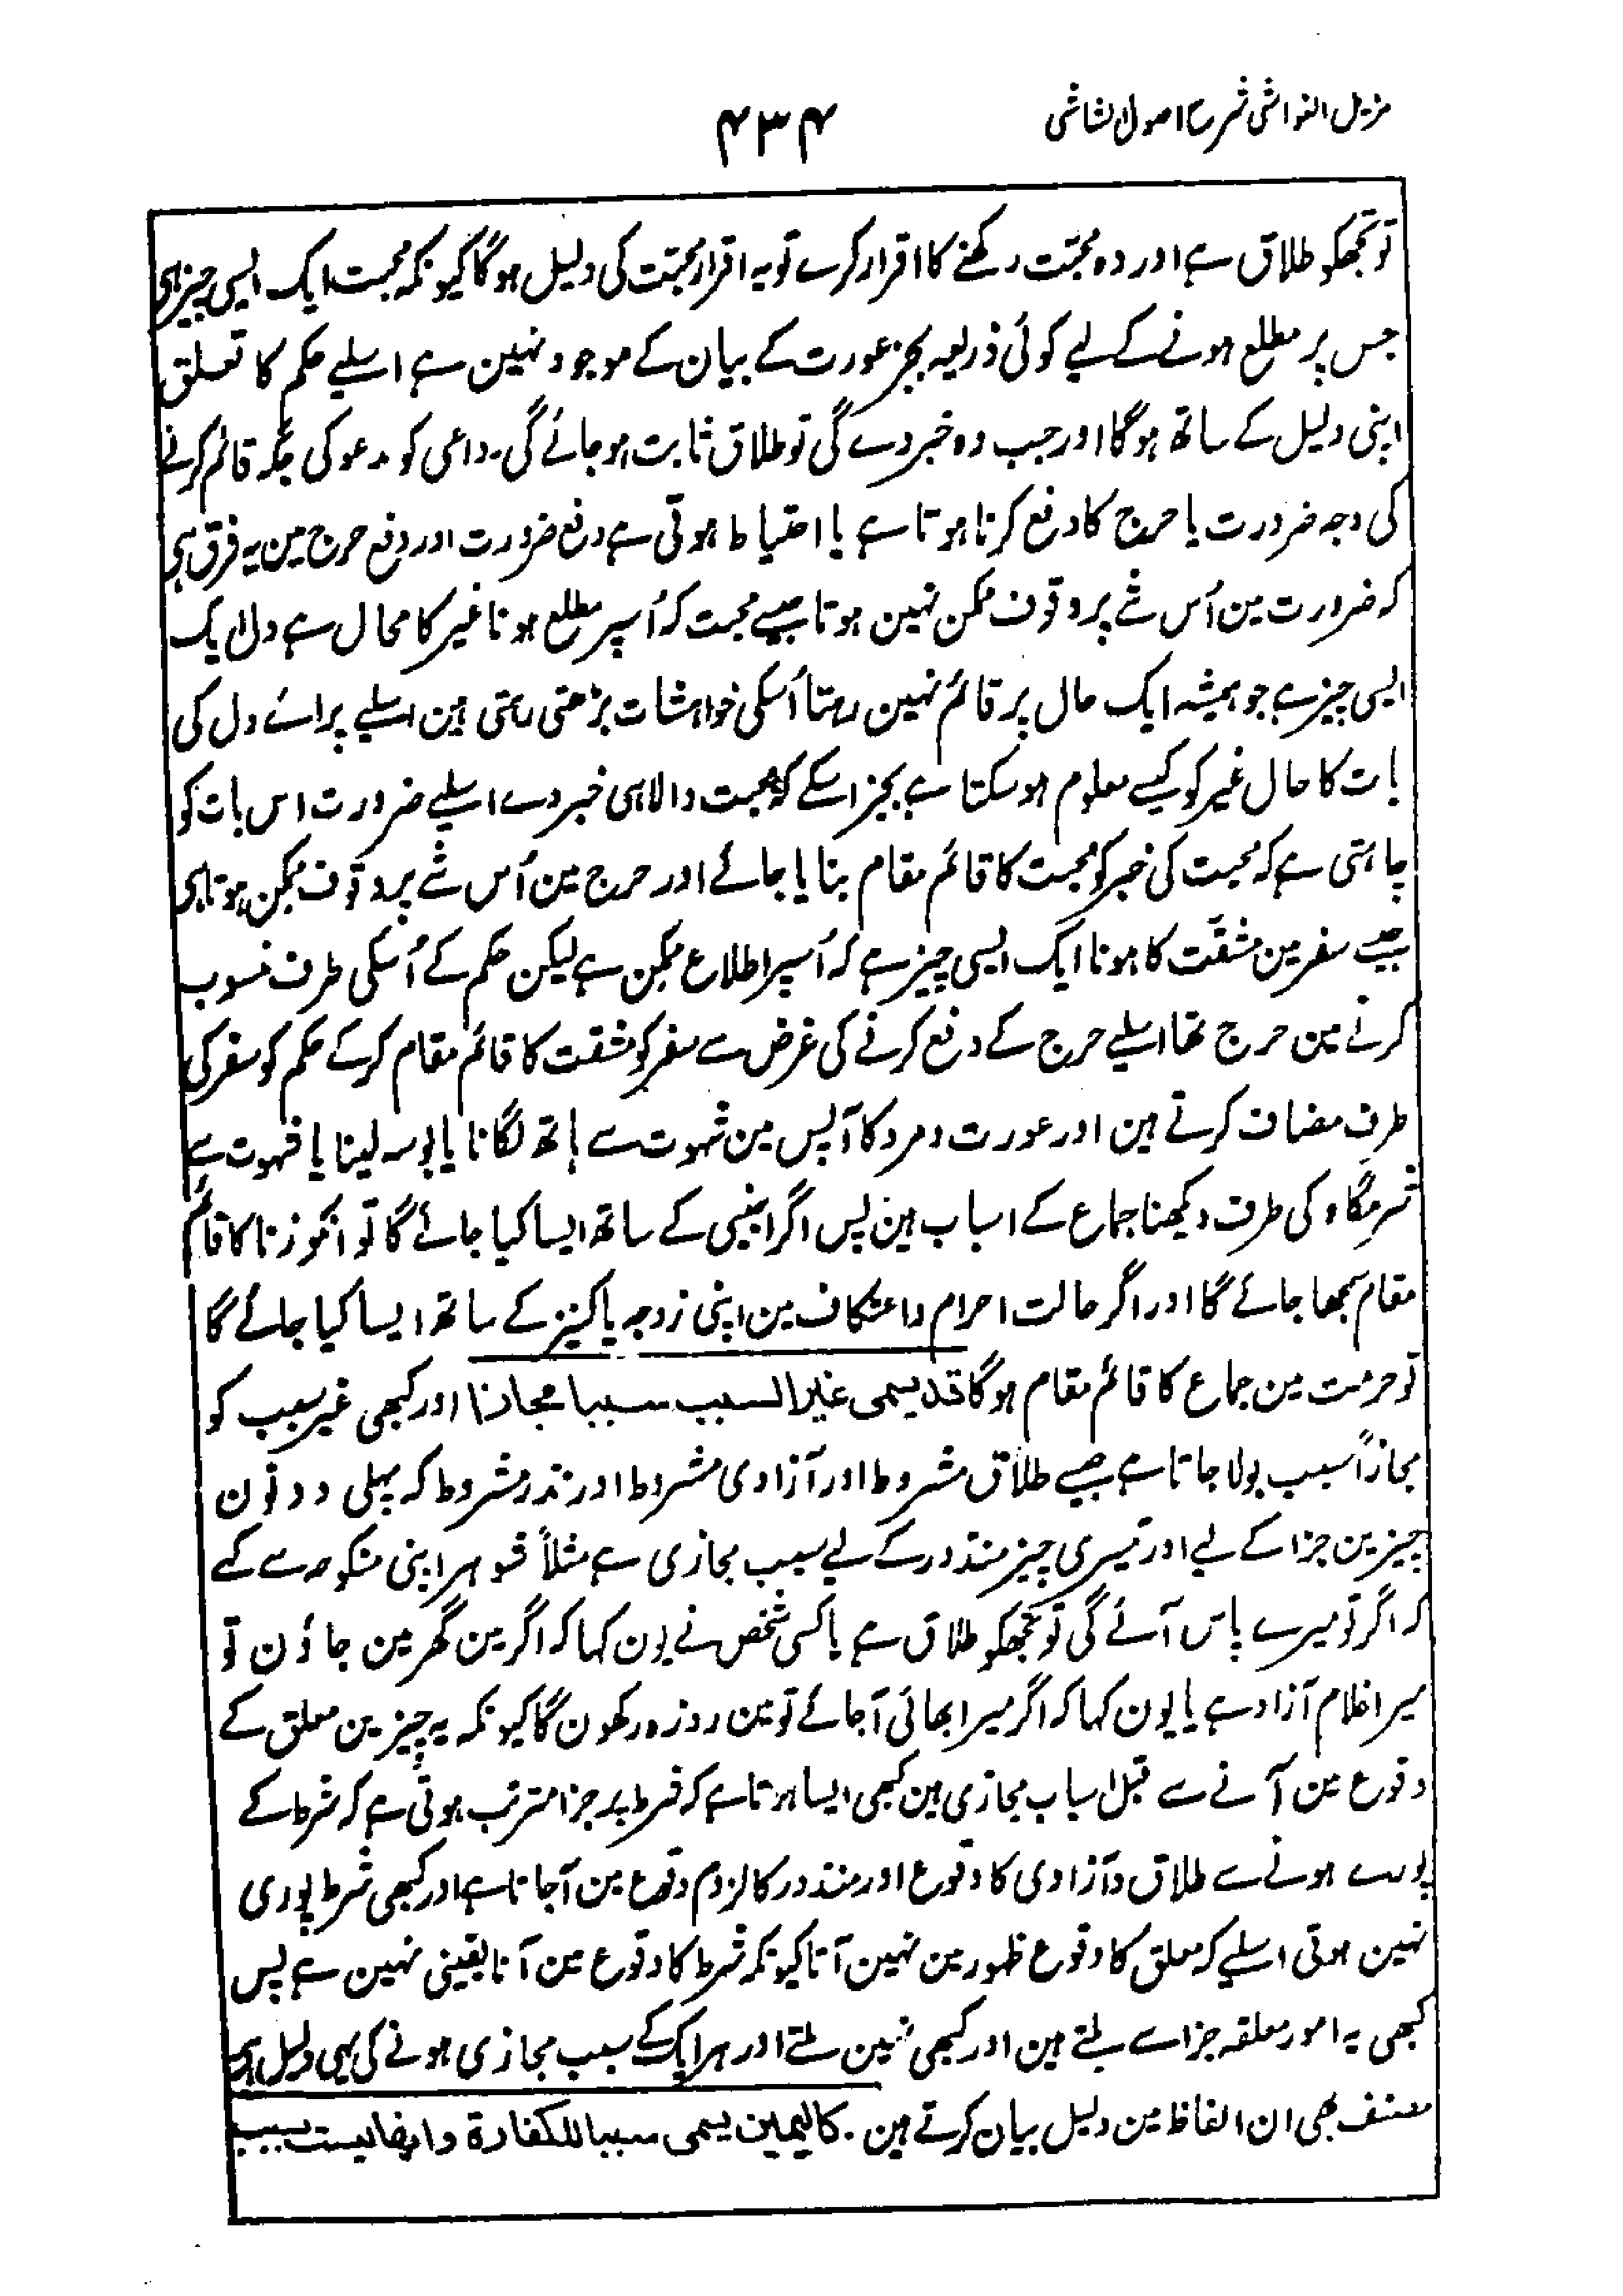 مزیل الغواشی شرح اصول الشاشی
۴۳۴
تو تجھکو طلاق ہے اور وہ محبّت رکھنے کا اقرار کرے تو یہ اقرار محبّت کی دلیل ہوگا کیونکہ محبت ایک ایسی چیز ہی
جس پر مطلع ہونے کے لیے کوئی ذریعہ بجز عورت کے بیان کے موجود نہین ہے اسلیے حکم کا تعلق
اپنی دلیل کے ساتھ ہوگا اور جب وہ خبر دے گی تو طلاق ثابت ہوجائے گی۔ داعی کو مدعو کی جگہ قائم کرنے
کی وجہ ضرورت یا حرج کا دفع کرنا ہوتا ہے یا احتیاط ہوتی ہے دفع ضرورت اور دفع حرج مین یہ فرق ہی
کہ ضرورت مین اُس شے پر وقوف ممکن نہین ہوتا جیسے محبت کہ اُسپر مطلع ہونا غیر کا محال ہے دل ایک
ایسی چیز ہے جو ہمیشہ ایک حال پر قائم نہین رہتا اُسکی خواہشات بڑھتی رہتی ہین اسلیے پرائے دل کی
بات کا حال غیر کو کیسے معلوم ہو سکتا ہے بجز اسکے کہ محبت والا ہی خبر دے اسلیے ضرورت اس بات کو
چاہتی ہے کہ محبت کی خبر کو محبت کا قائم مقام بنایا جائے اور حرج مین اُس شے پر وقوف ممکن ہوتا ہی
جیسے سفر مین مشقّت کا ہونا ایک ایسی چیز ہے کہ اُسپر اطلاع ممکن ہے لیکن حکم کے اُسکی طرف منسوب
کرنے مین حرج تھا اسلیے حرج کے دفع کرنے کی غرض سے سفر کو مشقت کا قائم مقام کرکے حکم کو سفر کی
طرف مضاف کرتے ہین اور عورت و مرد کا آپس مین شہوت سے ہاتھ لگانا یا بوسہ لینا یا شہوت سے
شرمگاہ کی طرف دیکھنا جماع کے اسباب ہین پس اگر اجنبی کے ساتھ ایسا کیا جائے گا تو انکو زنا کا قائم
مقام سمجھا جائے گا اور اگر حالت احرام و اعتکاف مین اپنی زوجہ یا کنیز کے ساتھ ایسا کیا جائے گا
تو حرمت مین جماع کا قائم مقام ہوگا قد یسمی غیر السبب سببا مجازا اور کبھی غیر سبب کو
مجازاً سبب بولا جاتا ہے جیسے طلاق مشروط اور آزادی مشروط اور نذر مشروط کہ پہلی دونون
چیزین جزا کے لیے اور تیسری چیز منذور کے لیے سبب مجازی ہے مثلاً شوہر اپنی منکوحہ سے کہے
کہ اگر تو میرے پاس آئے گی تو تجھکو طلاق ہے یا کسی شخص نے یون کہا کہ اگر مین گھر مین جاؤن تو
میرا غلام آزاد ہے یا یون کہا کہ اگر میرا بھائی آجائے تو مین روزہ رکھون گا کیونکہ یہ چیزین معلق کے
وقوع مین آنے سے قبل اسباب مجازی ہین کبھی ایسا ہوتا ہے کہ شرط پر جزا مترتب ہوتی ہے کہ شرط کے
پورے ہونے سے طلاق و آزادی کا وقوع اور منذور کا لزوم وقوع مین آجاتا ہے اور کبھی شرط پوری
نہین ہوتی اسلیے کہ معلق کا وقوع ظہور مین نہین آتا کیونکہ شرط کا وقوع مین آنا یقینی نہین ہے پس
کبھی یہ امور معلقہ جزا سے ملتے ہین اور کبھی نہین ملتے اور ہر ایک کے سبب مجازی ہونے کی یہی دلیل ہی
مصنف بھی ان الفاظ مین دلیل بیان کرتے ہین۔ کالیمین یسمی سببا للکفارة وانها لیست بسبب